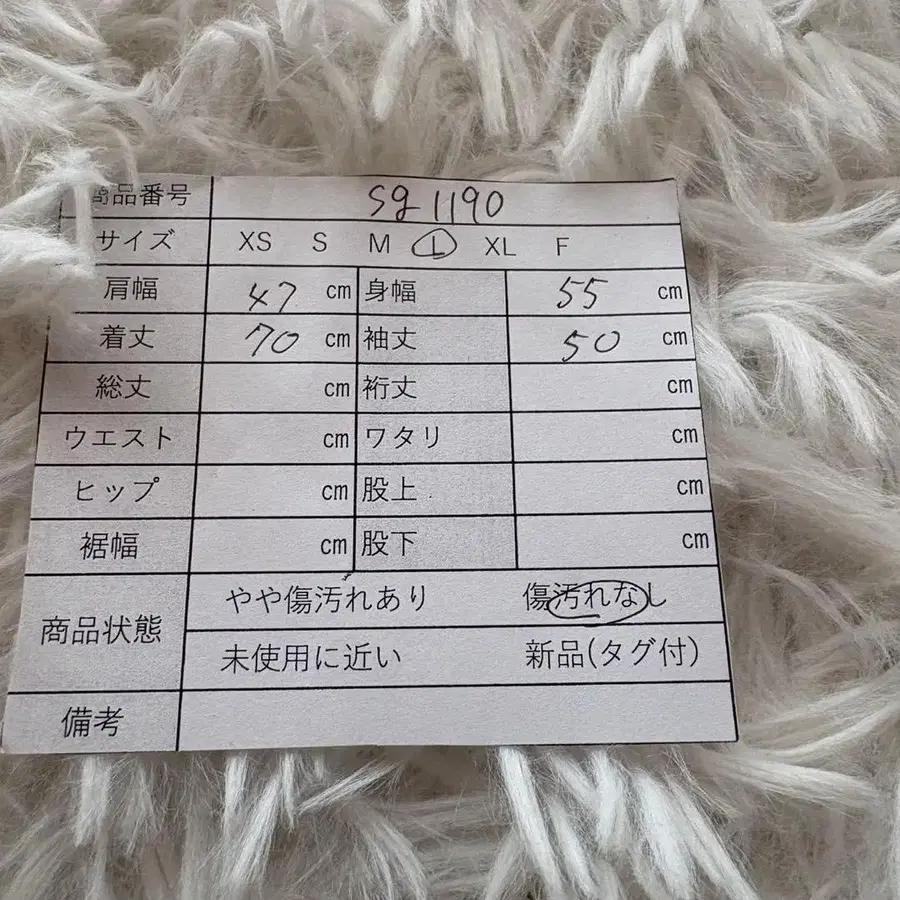 商品番号 sg1190
サイズ XS S M L XL F
肩幅 47 cm 身幅 55 cm
着丈 70 cm 袖丈 50 cm
総丈 cm 裄丈 cm
ウエスト cm ワタリ cm
ヒップ cm 股上 cm
裾幅 cm 股下 cm
商品状態 やや傷汚れあり 傷汚れなし
未使用に近い 新品(タグ付)
備考